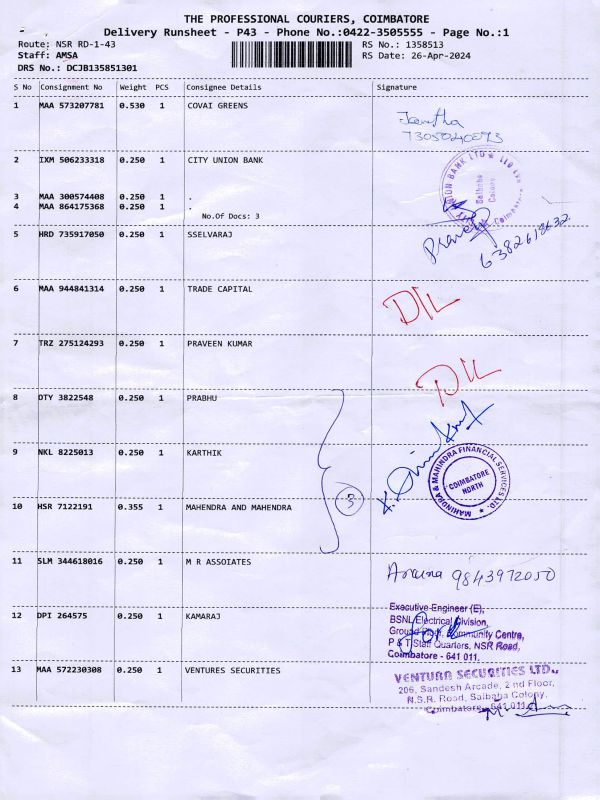 THE PROFESSIONAL COURIERS, COIMBATORE
Delivery Runsheet - P43 - Phone No.:0422-3505555 - Page No.:1
Route: NSR RD-1-43 RS No.: 1358513
Staff: AMSA RS Date: 26-Apr-2024
DRS No.: DCJB135851301
S No Consignment No Weight PCS Consignee Details Signature
1 MAA 573207781 0.530 1 COVAI GREENS
2 IXM 506233318 0.250 1 CITY UNION BANK
3 MAA 300574408 0.250 1 .
4 MAA 864175368 0.250 1 .
No.Of Docs: 3
Saibaba
Colony
Coimbatore
Praveep
6382618632
5 HRD 735917050 0.250 1 SSELVARAJ
6 MAA 944841314 0.250 1 TRADE CAPITAL
DIL
7 TRZ 275124293 0.250 1 PRAVEEN KUMAR
DIL
8 OTY 3822548 0.250 1 PRABHU
9 NKL 8225013 0.250 1 KARTHIK
3
MAHINDRA & MAHINDRA FINANCIAL SERVICES LTD.
COIMBATORE
NORTH
10 HSR 7122191 0.355 1 MAHENDRA AND MAHENDRA
11 SLM 344618016 0.250 1 M R ASSOIATES
Aruna 9843972050
12 DPI 264575 0.250 1 KAMARAJ
Executive Engineer (E),
BSNL Electrical Division,
Ground Floor, Community Centre,
P & T Staff Quarters, NSR Road,
Coimbatore - 641 011.
13 MAA 572230308 0.250 1 VENTURES SECURITIES
VENTURA SECURITIES LTD.,
206, Sandesh Arcade, 2 nd Floor,
N.S.R. Road, Saibaba Colony,
Coimbatore - 641 011